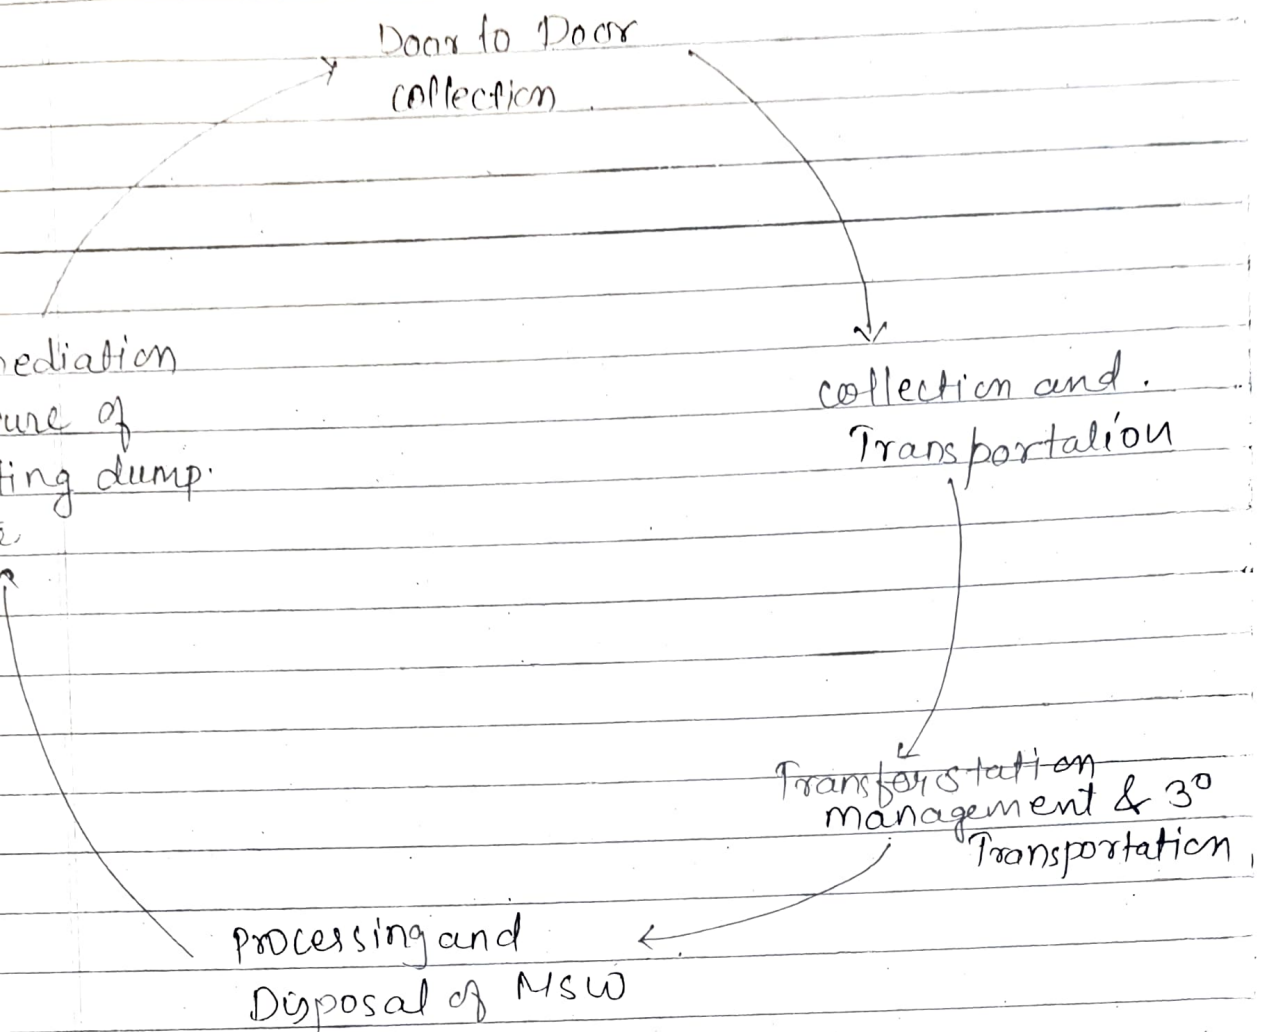 Door to Door
collection
collection and
Transportation
Transfer station
management & 3°
Transportation
processing and
Disposal of MSW
mediation
ure of
ting dump